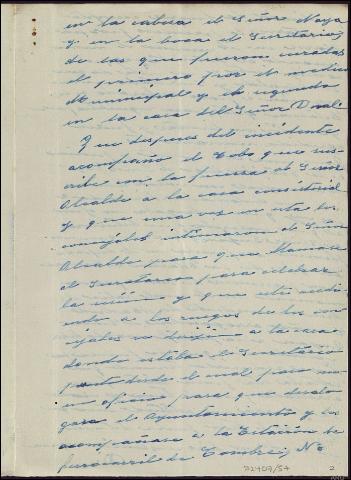 en la cabeza el Señor Moya
y en la boca el Secretario,
de las que fueron curados
el primero por el medico
Municipal y el segundo
en la casa del Señor
Que despues del incidente
acompaño el Cabo que sus-
cribe con la fuerza al Señor
Alcalde a la casa consistorial
y que una vez en esta los
concejales intimaron al Señor
Alcalde para que llamase
al Secretario para celebrar
la sesión y que este acedi-
endo a los ruegos de los con-
cejales se dirijió a la casa
donde estaba el Secretario
desde el cual paso un
un oficio para que
el Ayuntamiento y les
acompañase a la Estación de
ferrocarril de
72407/54
2